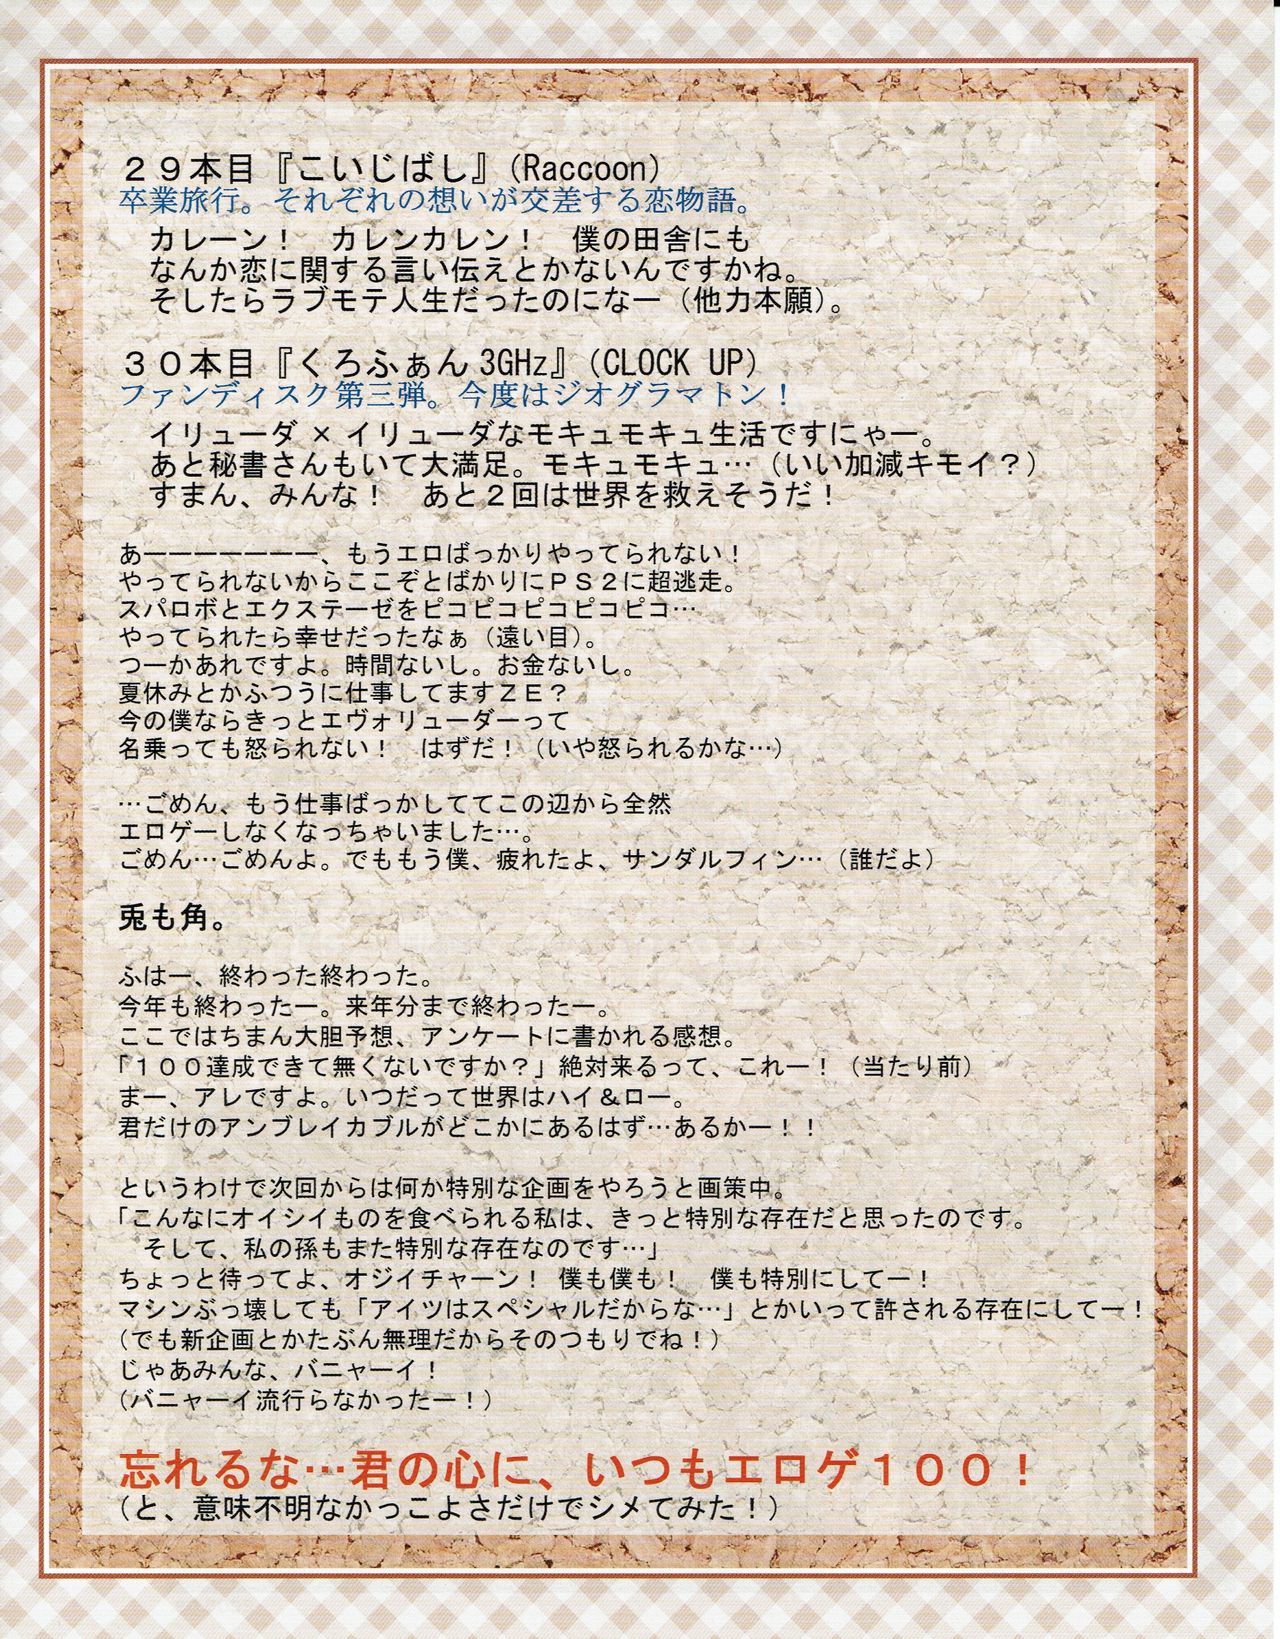 ２９本目『こいじばし』（Raccoon）
卒業旅行。それぞれの想いが交差する恋物語。
カレーン！　カレンカレン！　僕の田舎にも
なんか恋に関する言い伝えとかないんですかね。
そしたらラブモテ人生だったのになー（他力本願）。
３０本目『くろふぁん 3GHz』（CLOCK UP）
ファンディスク第三弾。今度はジオグラマトン！
イリューダ × イリューダなモキュモキュ生活ですにゃー。
あと秘書さんもいて大満足。モキュモキュ…（いい加減キモイ？）
すまん、みんな！　あと２回は世界を救えそうだ！
あーーーーーーー、もうエロばっかりやってられない！
やってられないからここぞとばかりにＰＳ２に超逃走。
スパロボとエクステーゼをピコピコピコピコピコ…
やってられたら幸せだったなぁ（遠い目）。
つーかあれですよ。時間ないし。お金ないし。
夏休みとかふつうに仕事してますＺＥ？
今の僕ならきっとエヴォリューダーって
名乗っても怒られない！　はずだ！（いや怒られるかな…）
…ごめん、もう仕事ばっかしててこの辺から全然
エロゲーしなくなっちゃいました…。
ごめん…ごめんよ。でももう僕、疲れたよ、サンダルフィン…（誰だよ）
兎も角。
ふはー、終わった終わった。
今年も終わったー。来年分まで終わったー。
ここではちまん大胆予想、アンケートに書かれる感想。
「１００達成できて無くないですか？」絶対来るって、これー！（当たり前）
まー、アレですよ。いつだって世界はハイ＆ロー。
君だけのアンブレイカブルがどこかにあるはず…あるかー！！
というわけで次回からは何か特別な企画をやろうと画策中。
「こんなにオイシイものを食べられる私は、きっと特別な存在だと思ったのです。
そして、私の孫もまた特別な存在なのです…」
ちょっと待ってよ、オジイチャーン！ 僕も僕も！　僕も特別にしてー！
マシンぶっ壊しても「アイツはスペシャルだからな…」とかいって許される存在にしてー！
（でも新企画とかたぶん無理だからそのつもりでね！）
じゃあみんな、バニャーイ！
（バニャーイ流行らなかったー！）
忘れるな…君の心に、いつもエロゲ１００！
（と、意味不明なかっこよさだけでシメてみた！）